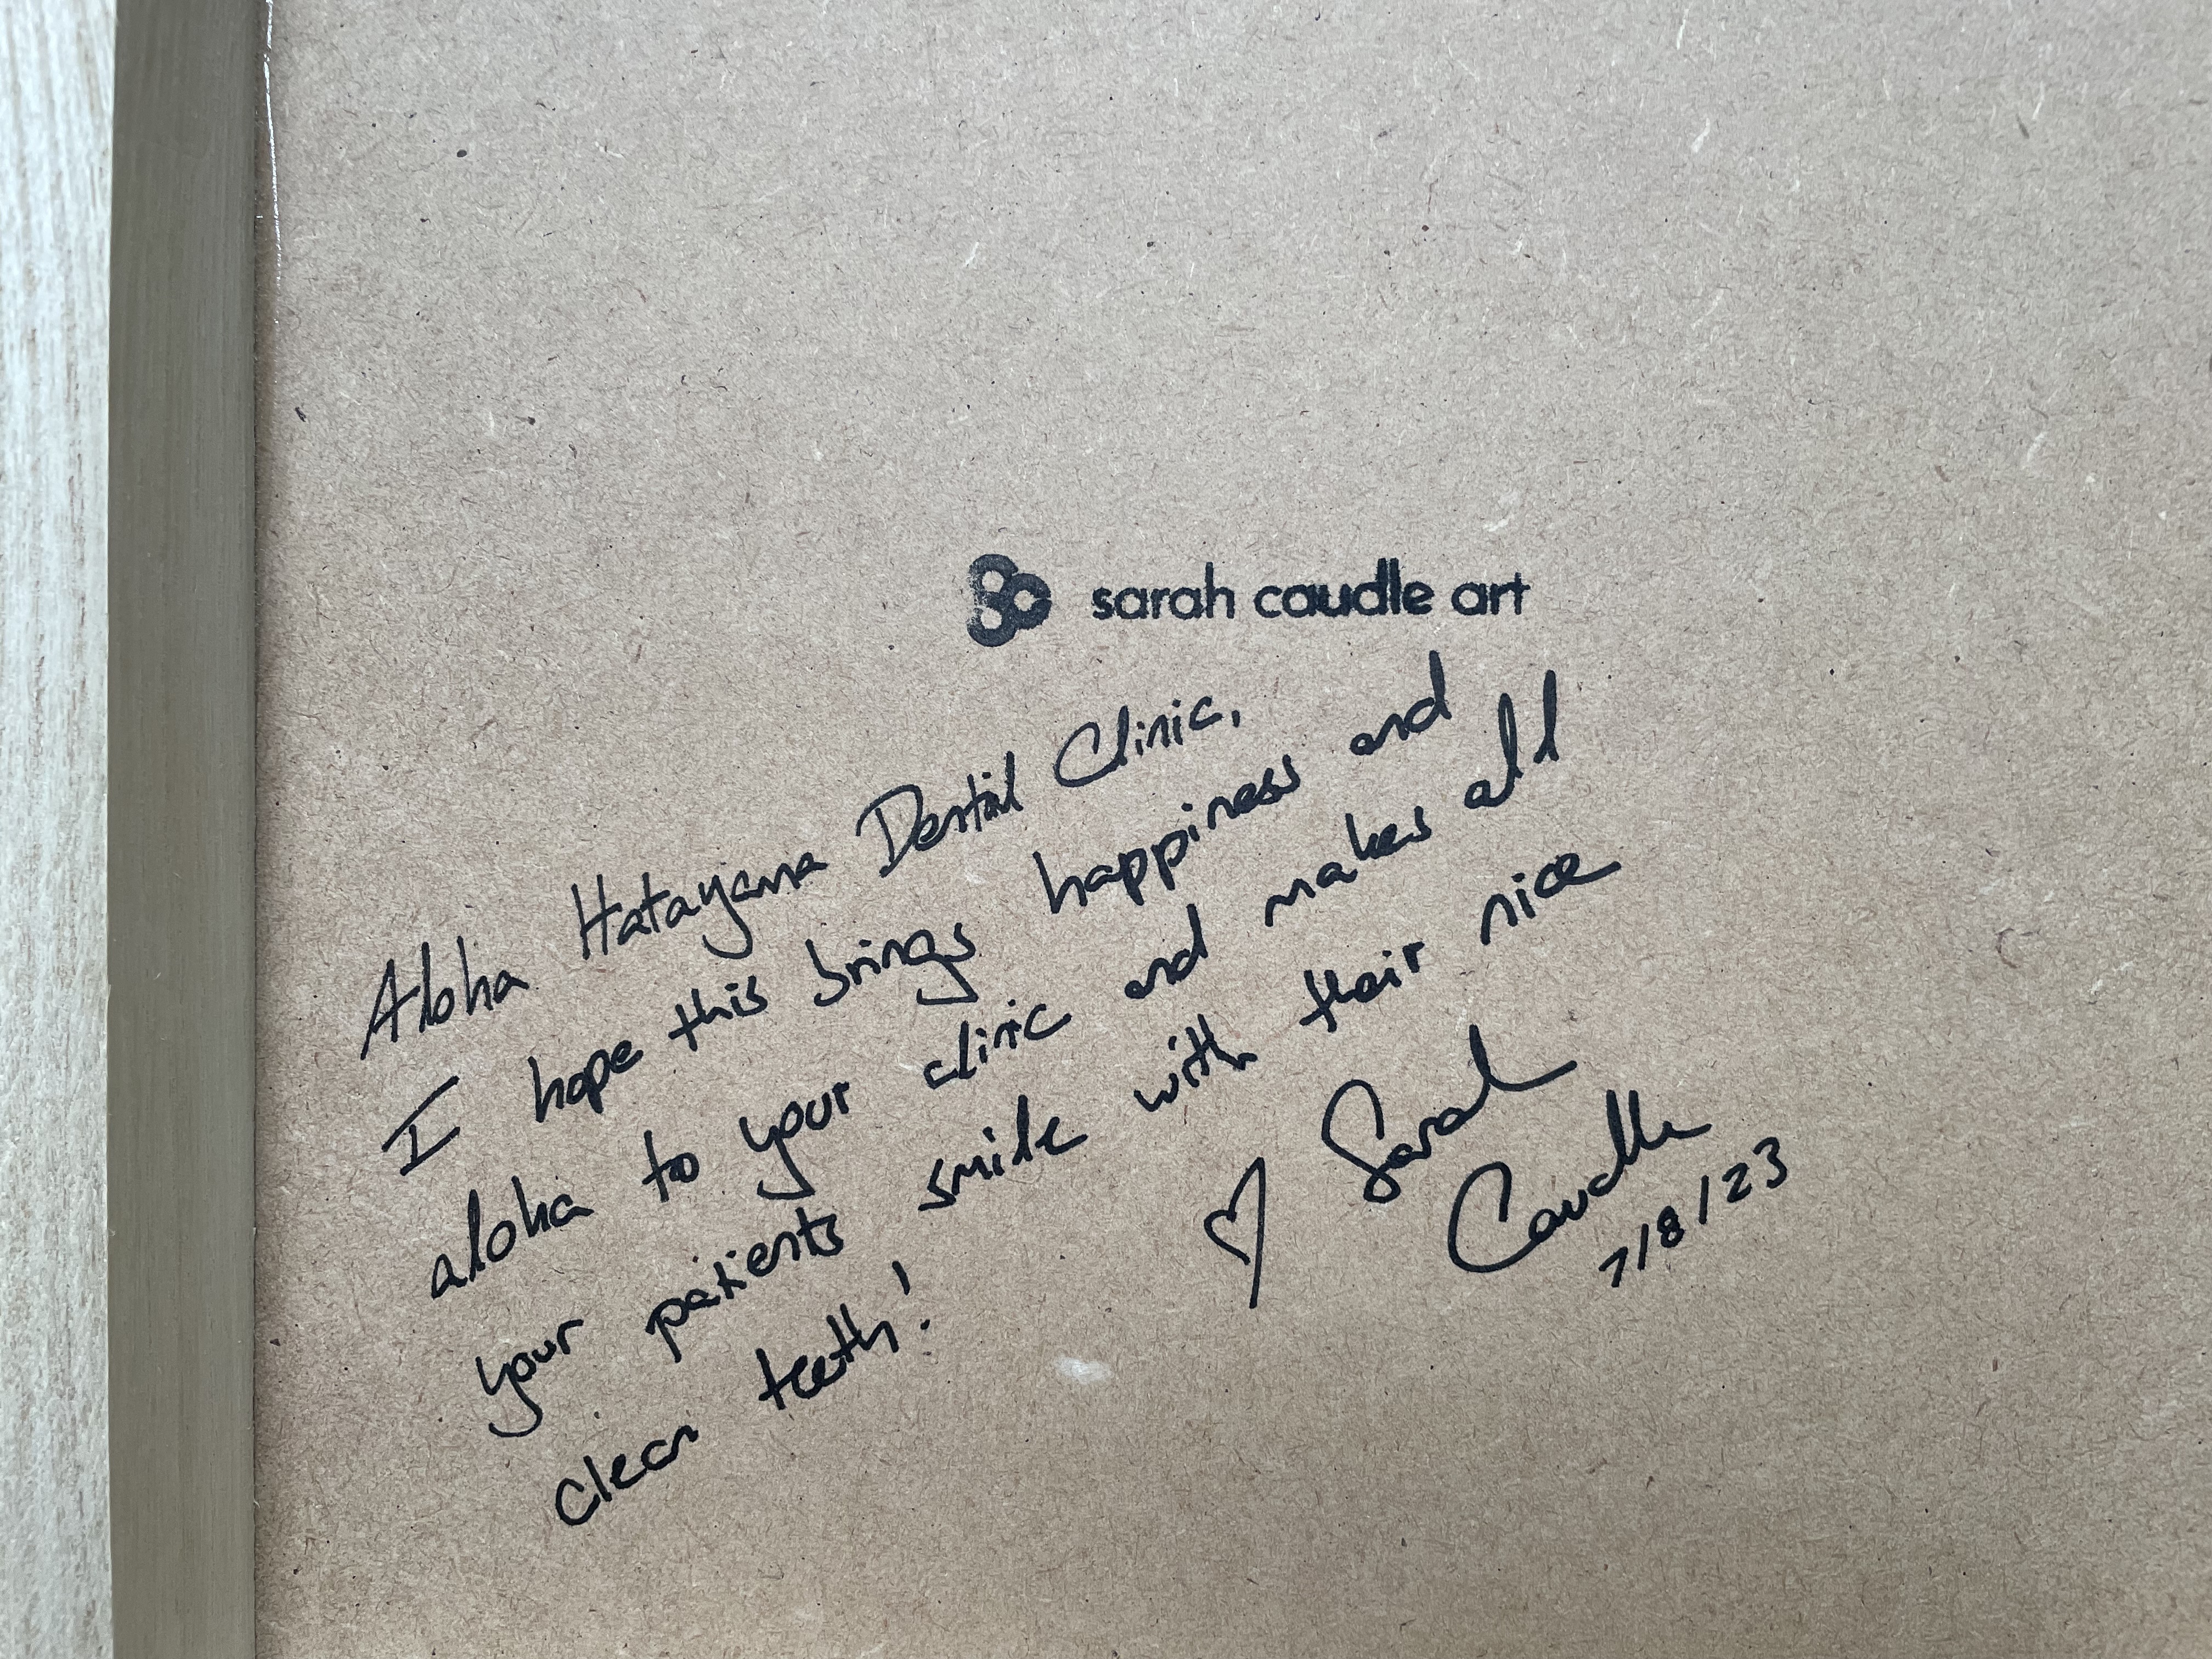 sarah caudle art
Aloha Hatayama Dental Clinic,
I hope this brings happiness and
aloha to your clinic and makes all
your patients smile with their nice
clean teeth!
♡ Sarah
Caudle
7/8/23